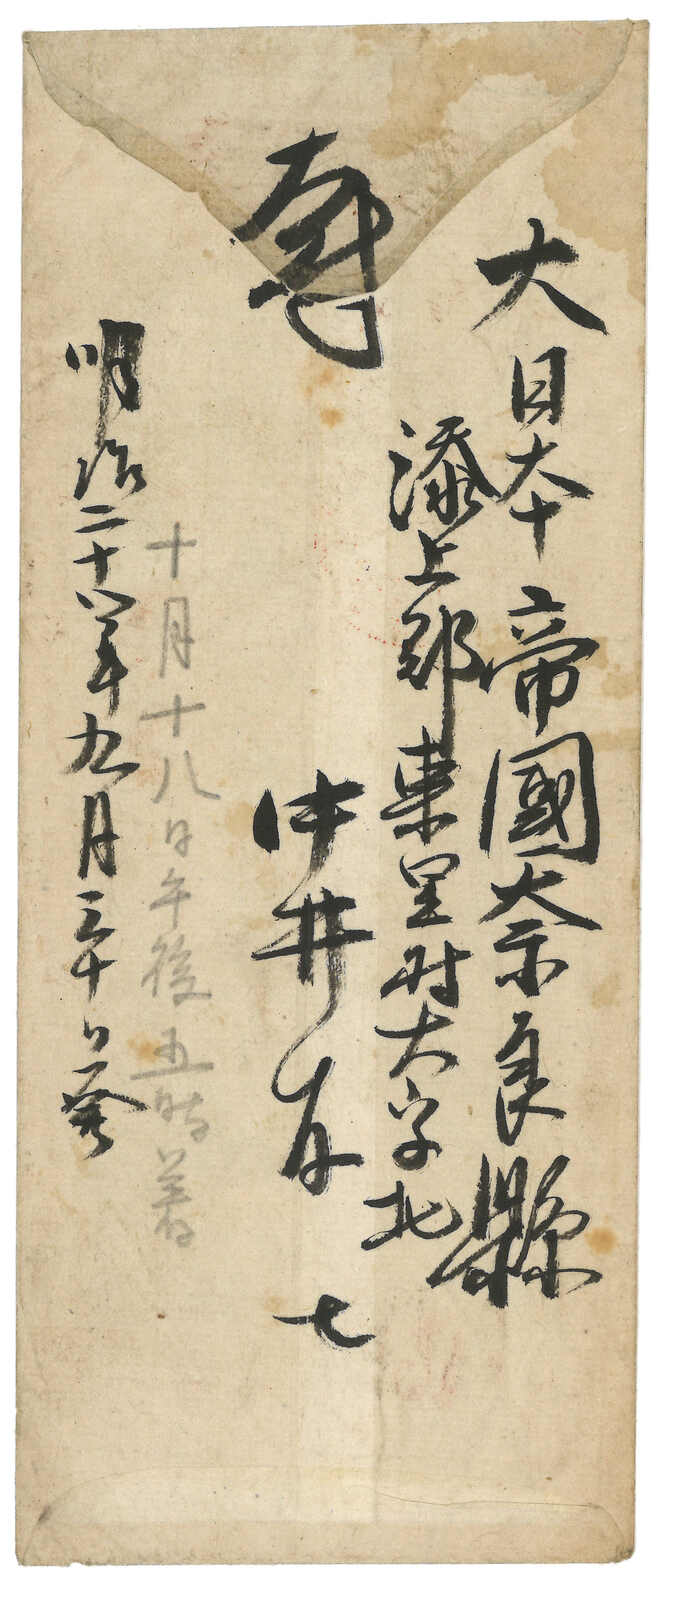 大日本帝國奈良縣
添上郡東里村大字北
中井 七
十月十八日午後五時着
明治二十八年九月三十日發